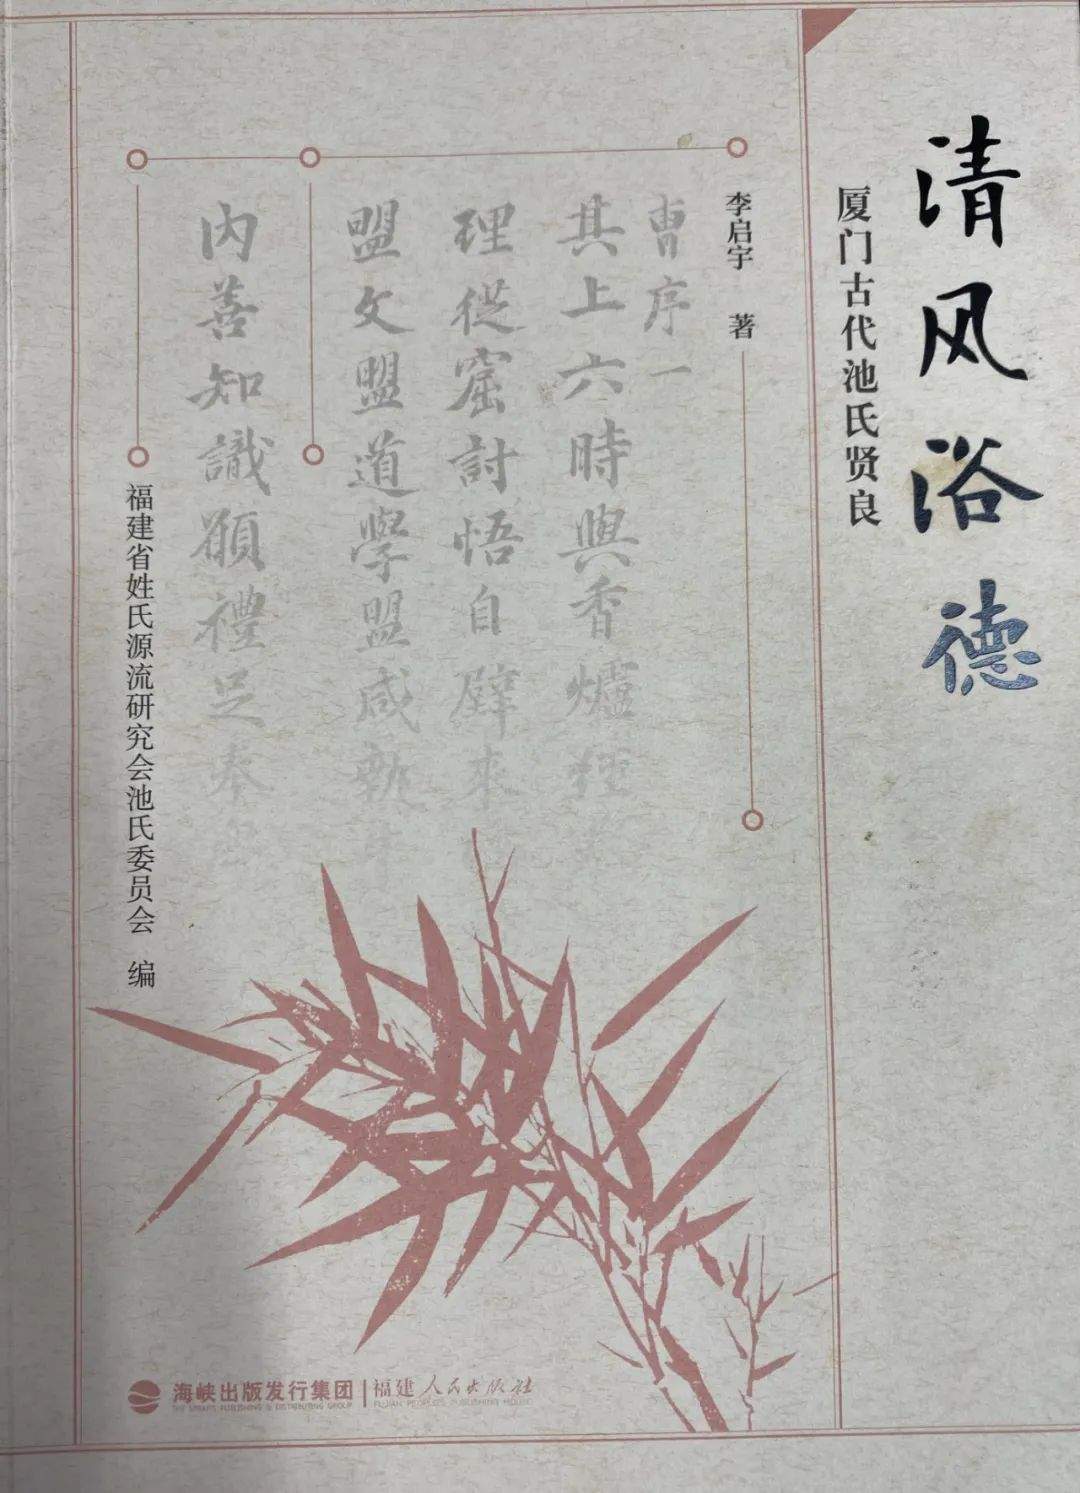 清风浴德
厦门古代池氏贤良
李启宇 著
曹序一
其上六時與香爐經
理從窟討悟自壁來
盟文盟道學盟咸新
内善知識願禮足奉
福建省姓氏源流研究会池氏委员会 编
海峡出版发行集团 | 福建人民出版社
THE STRAITS PUBLISHING & DISTRIBUTING GROUP FUJIAN PEOPLE'S PUBLISHING HOUSE